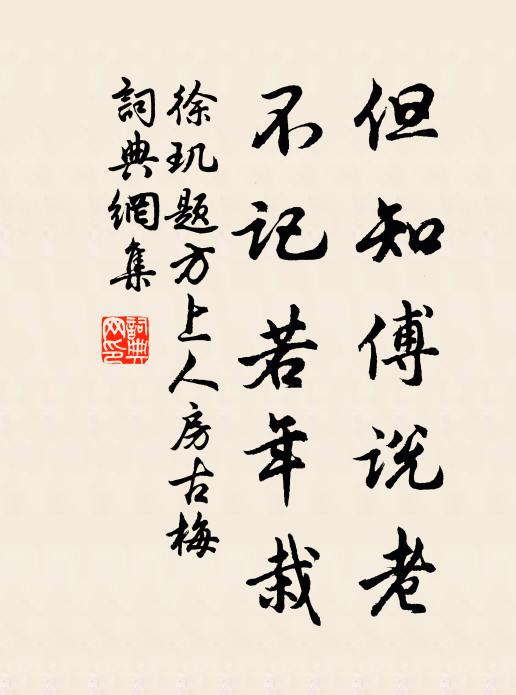 但知傅说老
不记若年栽
徐玑题方上人房古梅
詞典網集
詞典网印